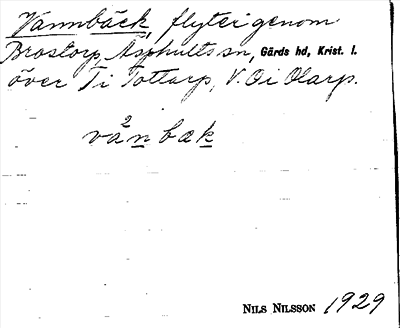 Vännbäck, flyter genom
Brostorp, Äsphults sn, Gärds hd, Krist. l.
över Ti Tottarp, V. Oi Olarp.
2
vånbak
NILS NILSSON 1929